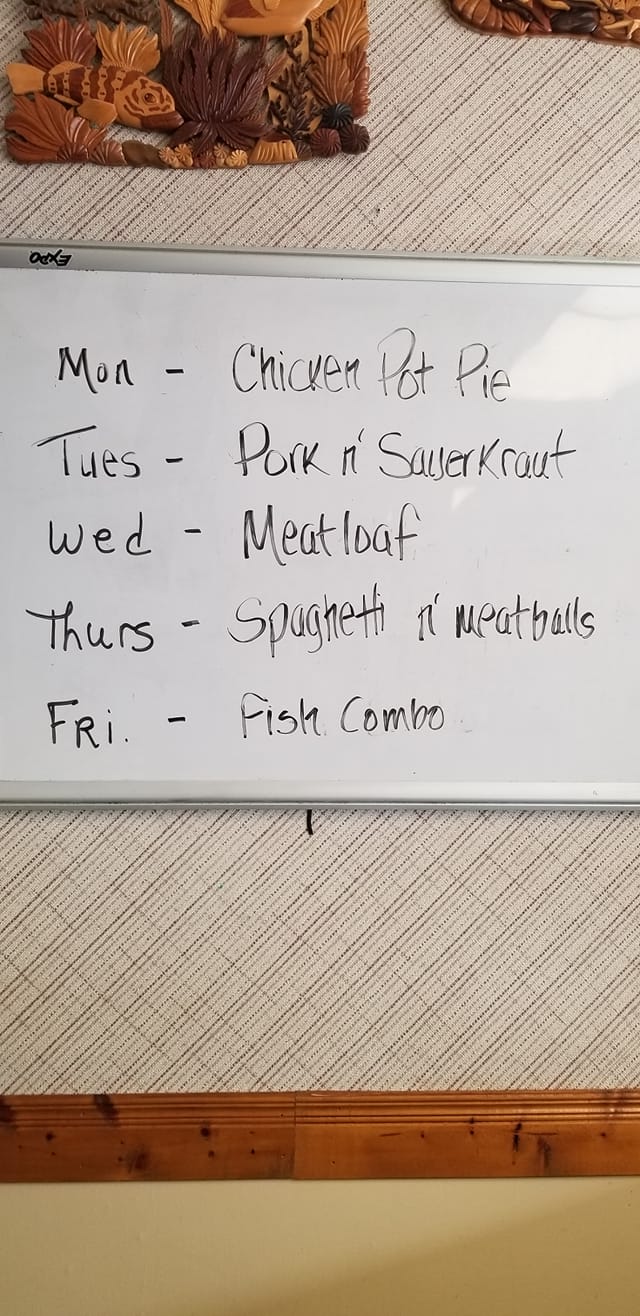 EXPO
Mon - Chicken Pot Pie
Tues - Pork n' Sauerkraut
Wed - Meatloaf
Thurs - Spaghetti n' meatballs
FRi. - Fish Combo